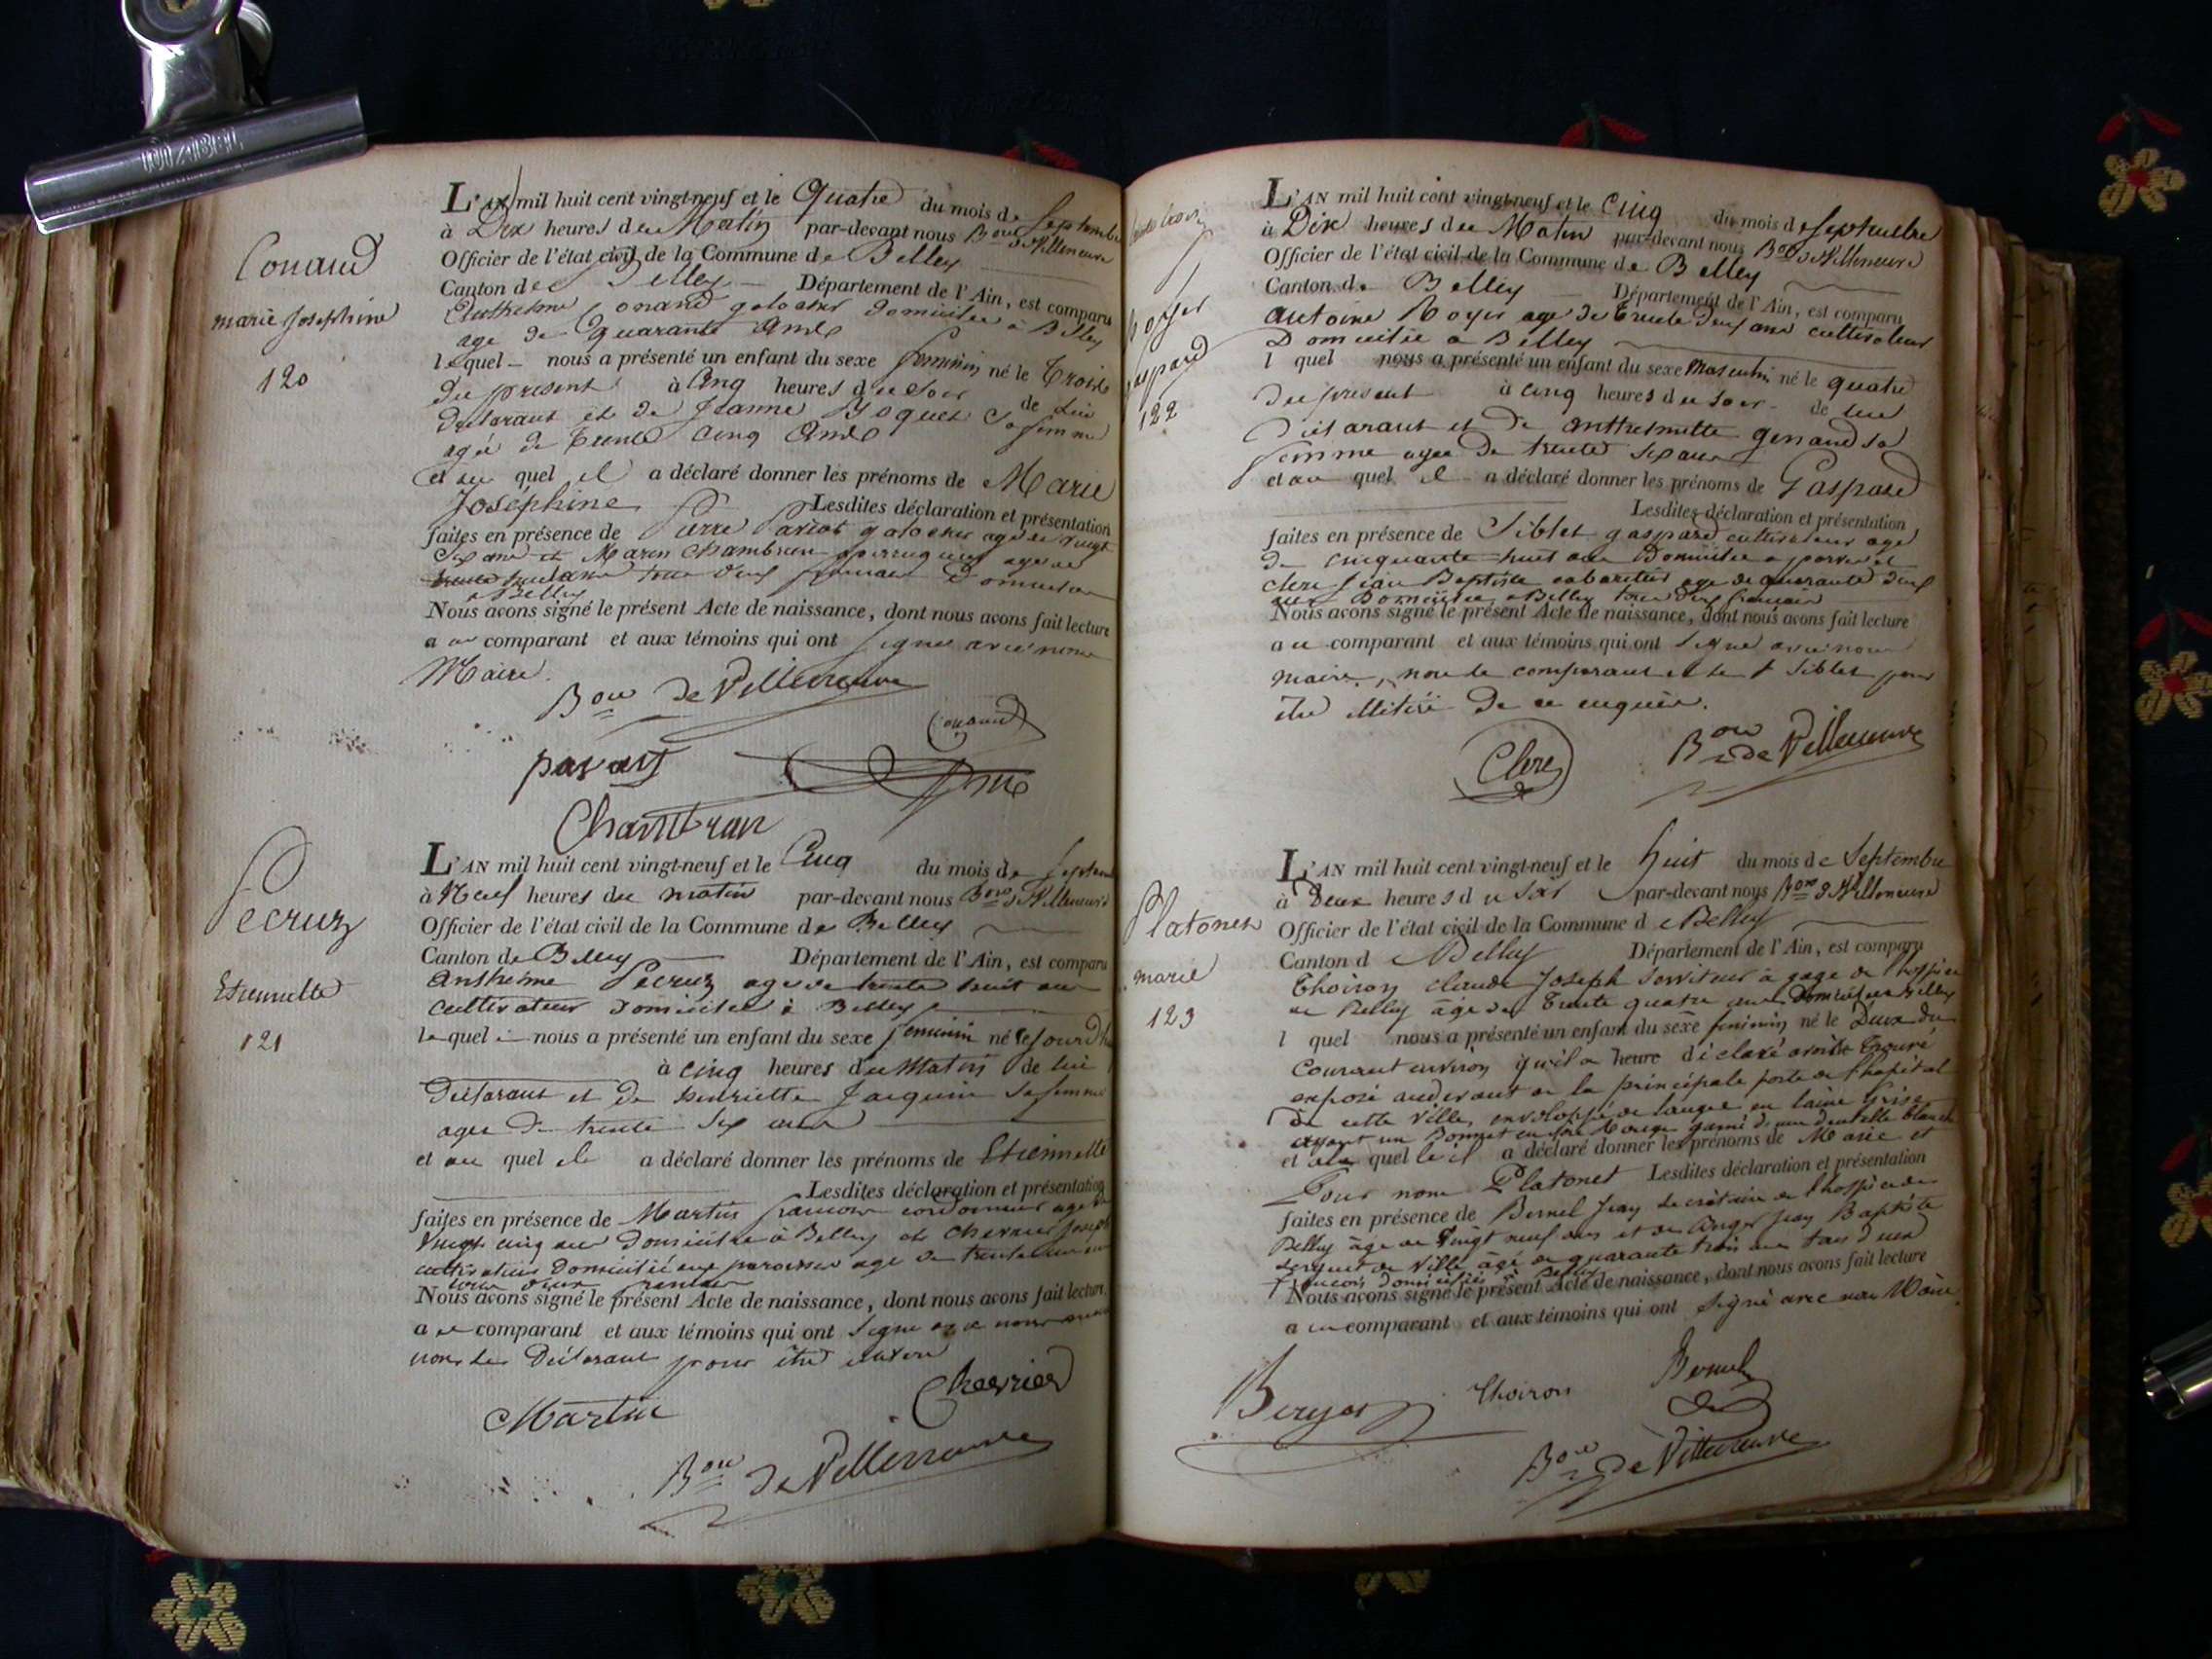 L'AN mil huit cent vingt-neuf et le Quatre du mois de Septembre
à Dix heures du Matin par-devant nous Bon de Villeneuve
Officier de l'état civil de la Commune de Belley
Canton de Belley Département de l'Ain, est comparu
Anthelme Conand galochier domicilié à Belley
age de quarante ans
lequel nous a présenté un enfant du sexe feminin né le Trois
du présent à Cinq heures du soir de lui
declarant et de Jeanne sa femme
agée de trente cinq ans
et au quel il a déclaré donner les prénoms de Marie
Joséphine Lesdites déclaration et présentation
faites en présence de Pierre galochier age de vingt
six ans et Chambran perruquier age de
tous deux français Domiciliés
a Belley
Nous avons signé le présent Acte de naissance, dont nous avons fait lecture
au comparant et aux témoins qui ont signé avec nous
Maire.
Bon de Villeneuve
Conand
Chambran
Conand
marie Josephine
120
L'AN mil huit cent vingt-neuf et le Cinq du mois de Septem
à Neuf heures du matin par-devant nous Bon de Villeneuve
Officier de l'état civil de la Commune de Belley
Canton de Belley Département de l'Ain, est comparu
Anthelme Pecruz age de trente huit ans
cultivateur domicilié à Belley
lequel nous a présenté un enfant du sexe feminin né le Jourd'h
à cinq heures du Matin de lui
Déclarant et de henriette Jacquin sa femme
agee de trente six ans
et au quel il a déclaré donner les prénoms de Etiennette
Lesdites déclaration et présentation
faites en présence de Martin françois cordonnier age de
Vingt cinq ans domicilié à Belley et Chevrier Joseph
cultivateur Domicilié age de trente
tous deux
Nous avons signé le présent Acte de naissance, dont nous avons fait lecture
au comparant et aux témoins qui ont signé avec nous
non le Déclarant pour être
Chevrier
Martin
Bon de Villeneuve
Pecruz
Etiennette
121
L'AN mil huit cent vingt-neuf et le Cinq du mois de Septembre
à Dix heures du Matin par-devant nous Bon de Villeneuve
Officier de l'état civil de la Commune de Belley
Canton de Belley Département de l'Ain, est comparu
Antoine Royer age de Trente deux ans cultivateur
Domicilié a Belley
l quel nous a présenté un enfant du sexe Masculin né le quatre
du présent à cinq heures du soir de lui
Déclarant et de anthelmette genand sa
femme agee de trente six ans
et au quel il a déclaré donner les prénoms de Gaspard
Lesdites déclaration et présentation
faites en présence de Siblet gaspard cultivateur age
de cinquante huit ans Domicilié a et
Clerc Jean Baptiste cabaretier age de quarante deux
ans Domicilié a Belley tous deux français
Nous avons signé le présent Acte de naissance, dont nous avons fait lecture
au comparant et aux témoins qui ont signé avec nous
maire, non le comparant et le Siblet pour
être illitéré de ce enquis.
Clerc
Bon de Villeneuve
Royer
gaspard
122
L'AN mil huit cent vingt-neuf et le huit du mois de Septembre
à Deux heures du Soir par-devant nous Bon de Villeneuve
Officier de l'état civil de la Commune de Belley
Canton d Belley Département de l'Ain, est comparu
Thoiron Claude Joseph serviteur à gage de l'hospice
de Belley âge de Trente quatre ans domicilié a Belley
l quel nous a présenté un enfant du sexe feminin né le Deux du
Courant environ heure déclaré avoir Trouvé
exposé audevant de la principale porte de l'hopital
de cette Ville, enveloppé de langes en laine grise
ayant un Bonnet en rouge garni d'une dentelle blanche
et auquel il a déclaré donner les prénoms de Marie et
Pour nom Platonet Lesdites déclaration et présentation
faites en présence de Bernel Jean Secrétaire de l'hospice de
Belley âge de Vingt neuf ans et de Jean Baptiste
sergent de Ville âgé de quarante trois ans tous deux
françois domiciliés à Belley
Nous avons signé le présent Acte de naissance, dont nous avons fait lecture
au comparant et aux témoins qui ont signé avec nous Maire
Thoiron
Bernel
Bon de Villeneuve
Platonet
marie
123